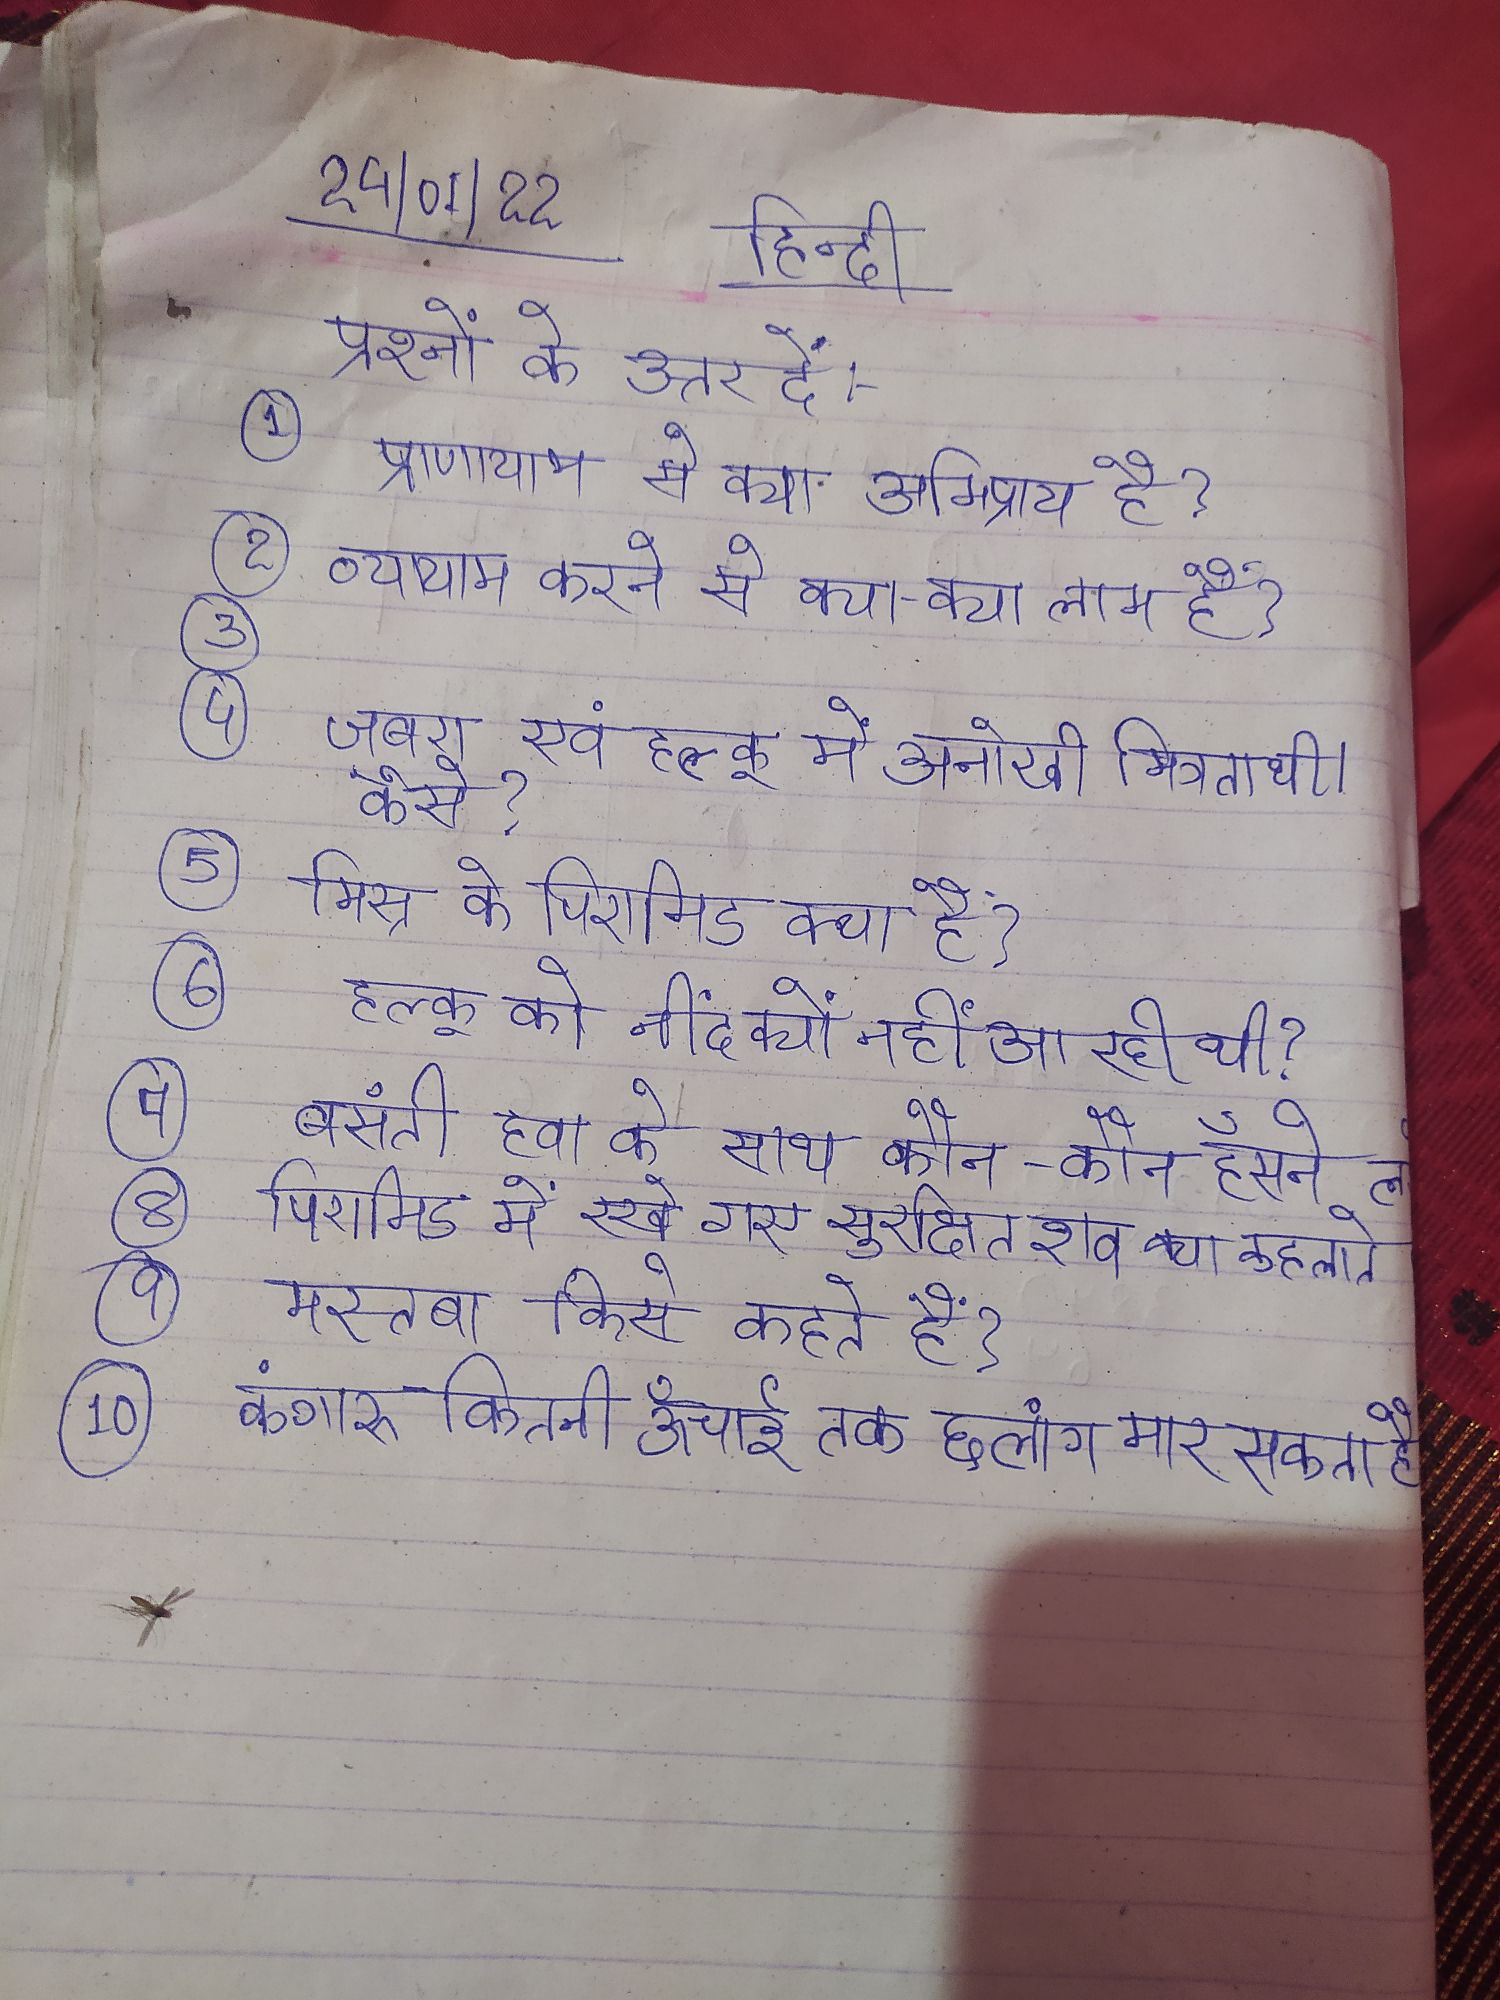 24/01/22
हिन्दी
प्रश्नों के उत्तर दें।-
① प्राणायाम से क्या अभिप्राय है?
② व्यायाम करने से क्या-क्या लाभ हैं?
③
④ जबरा एवं हल्कू में अनोखी मित्रता थी।
कैसे?
⑤ मिस्र के पिरामिड क्या हैं?
⑥ हल्कू को नींद क्यों नहीं आ रही थी?
⑦ बसंती हवा के साथ कौन-कौन हँसने
⑧ पिरामिड में रखे गए सुरक्षित शव क्या कहलाते
⑨ मस्तबा किसे कहते हैं?
⑩ कंगारू कितनी ऊँचाई तक छलांग मार सकता है